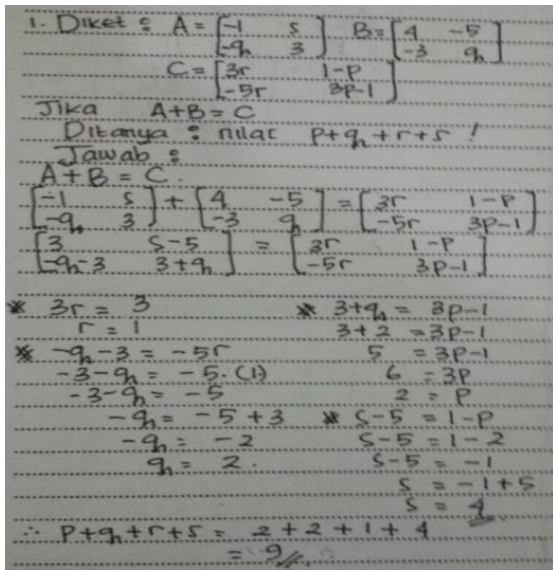 1. Diket : A = [-1 s B = [4 -5
-q 3] -3 q]
C = [3r 1-p
-5r 3p-1]
Jika A+B = C
Ditanya : nilai p+q+r+s !
Jawab :
A + B = C.
[-1 s + [4 -5 = [3r 1-p
-q 3] -3 q] -5r 3p-1]
[3 s-5 = [3r 1-p
-q-3 3+q] -5r 3p-1]
* 3r = 3
r = 1
* -q-3 = -5r
-3-q = -5.(1)
-3-q = -5
-q = -5+3
-q = -2
q = 2.
* 3+q = 3p-1
3+2 = 3p-1
5 = 3p-1
6 = 3p
2 = p
* s-5 = 1-p
s-5 = 1-2
s-5 = -1
s = -1+5
s = 4
∴ p+q+r+s = 2+2+1+4
= 9